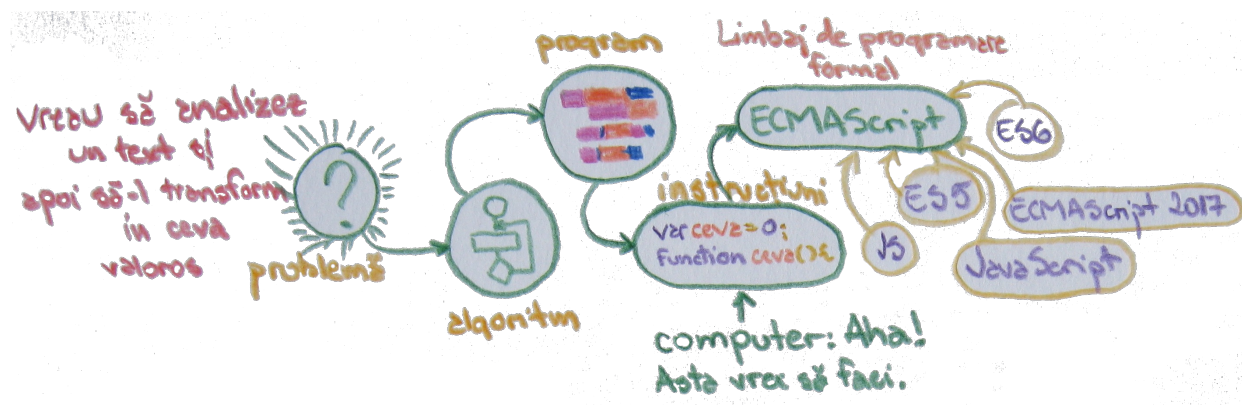 vreau să analizez
un text și
apoi să-l transform
in ceva
valoros
problemă
algoritm
program
instrucțiuni
var ceva = 0;
function ceva(){
computer: Aha!
Asta vrea să faci.
Limbaj de programare
formal
ECMAScript
ES6
ES5
ECMAScript 2017
JS
JavaScript